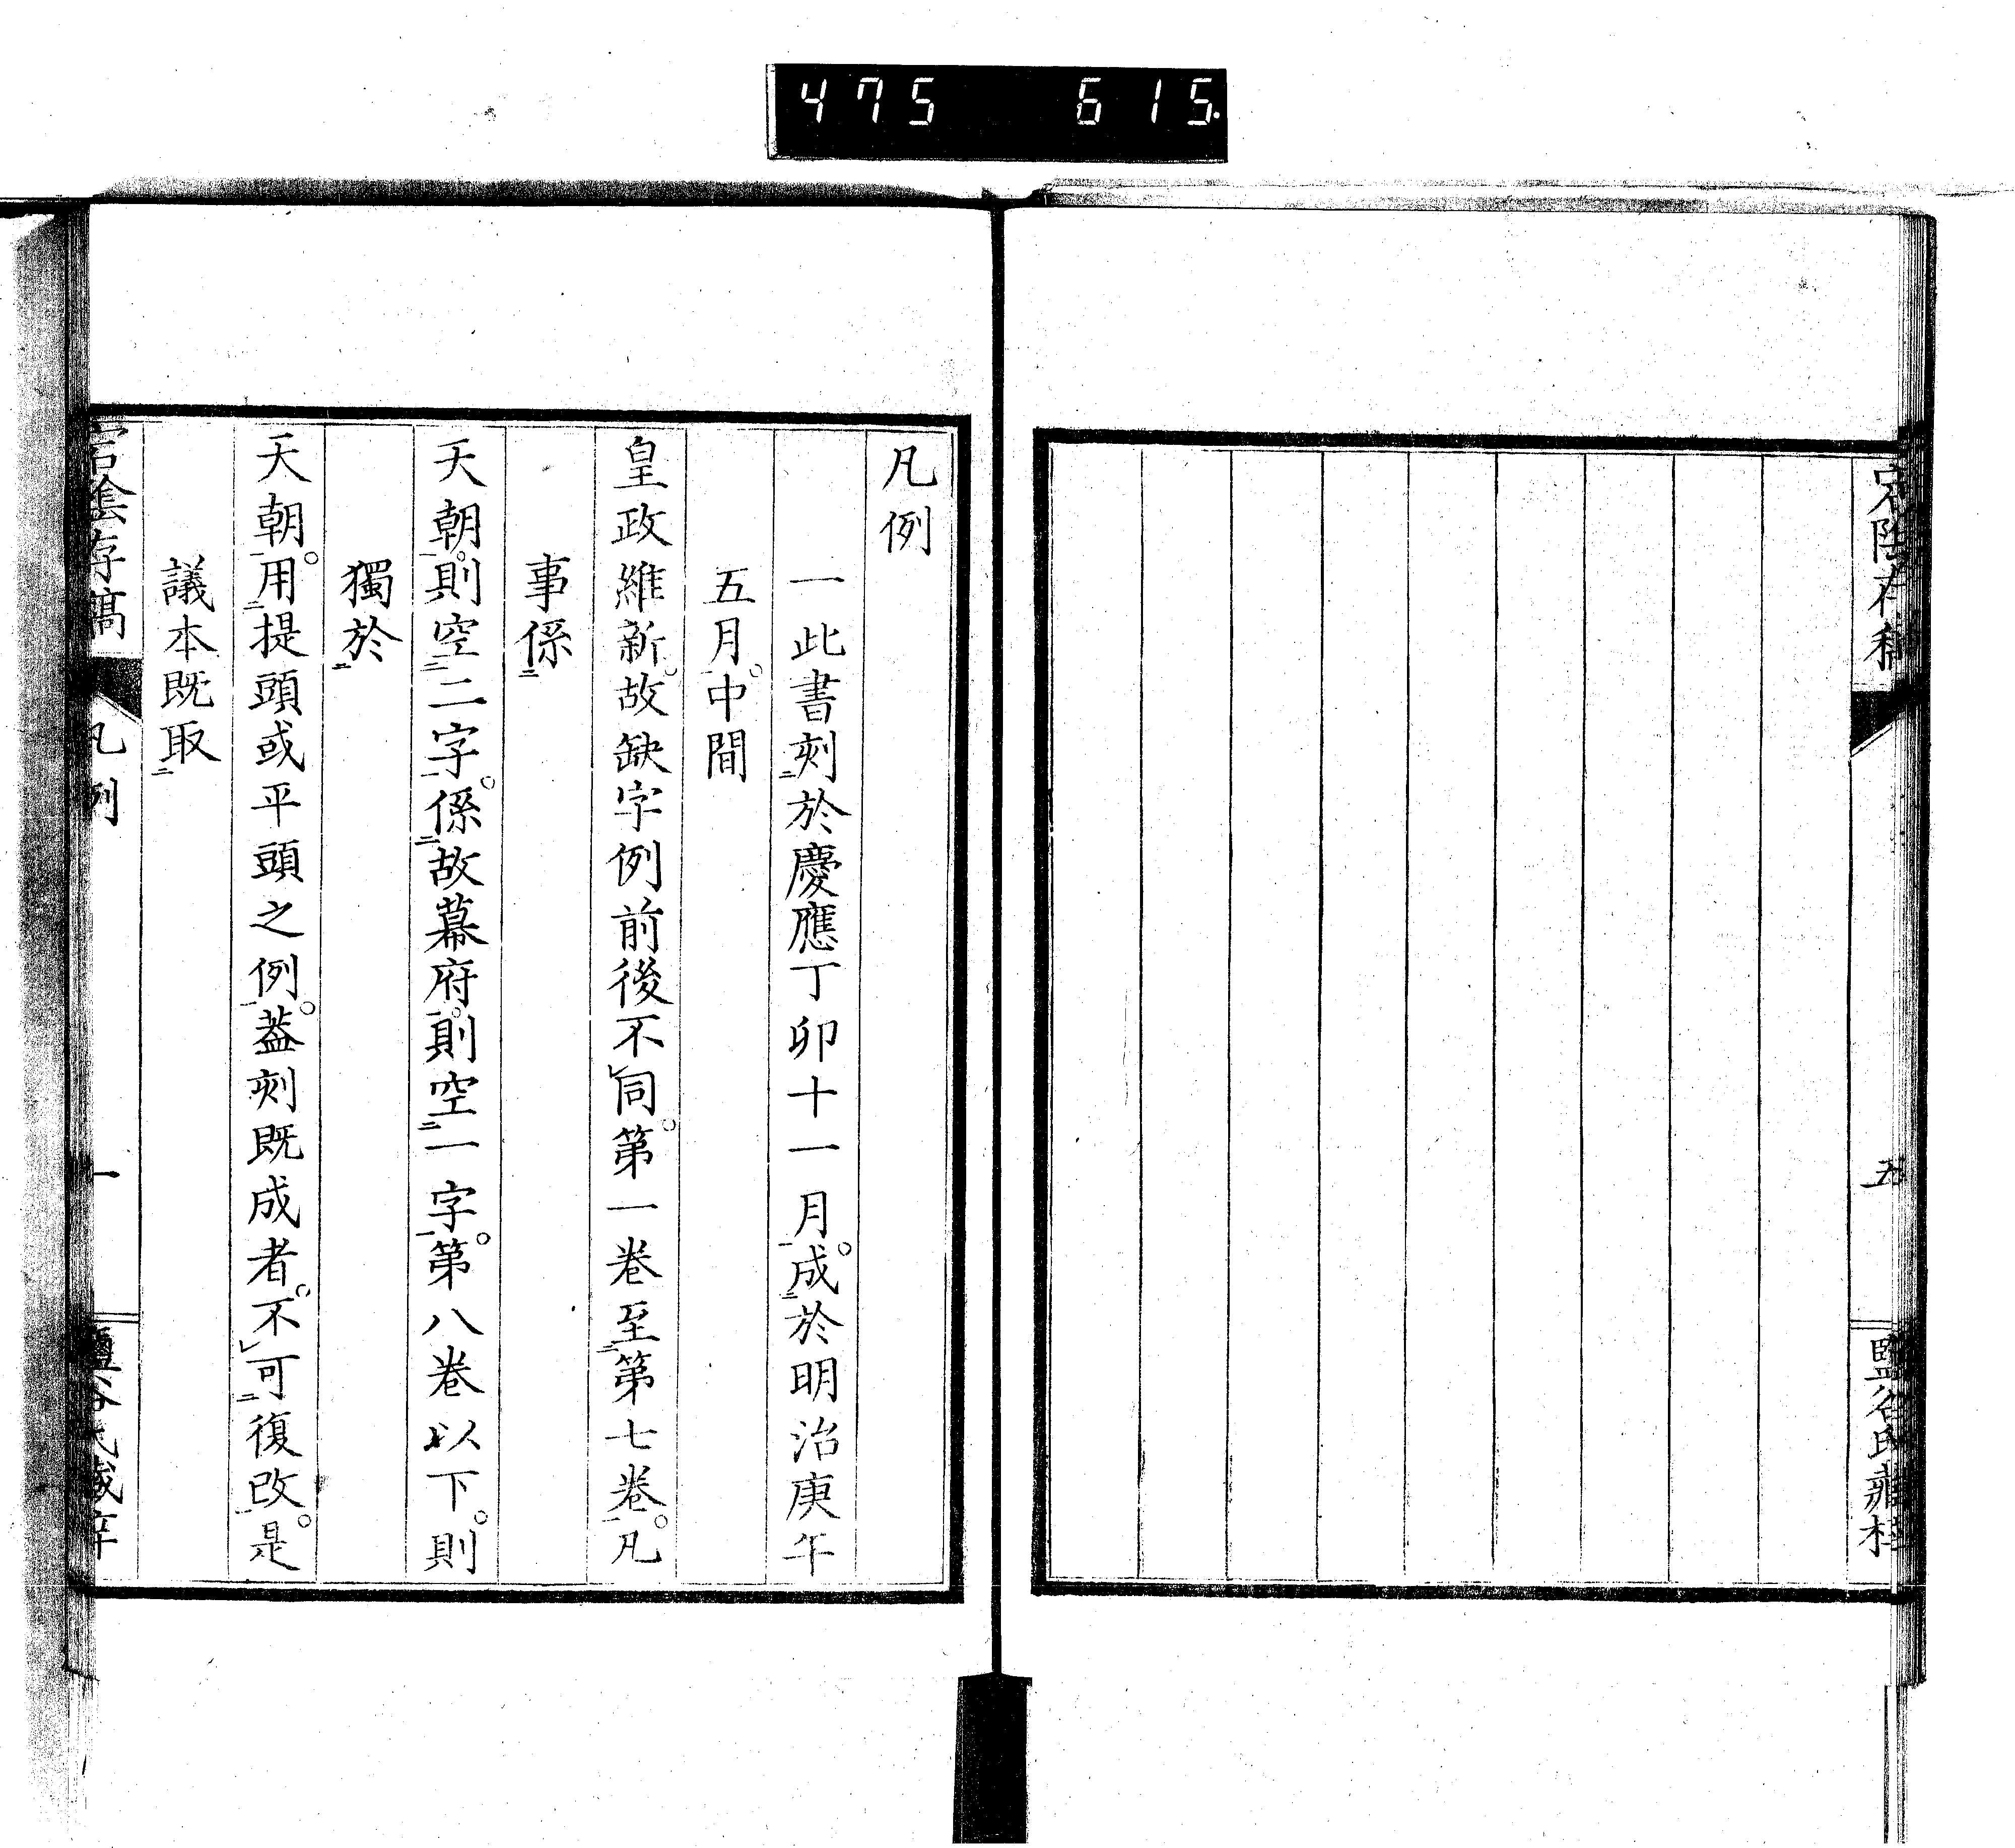 475 615.
宕陰存稿
五
鹽谷氏藏梓
凡例
一此書刻於慶應丁卯十一月。成於明治庚午
五月。中間
皇政維新。故缺字例前後不同。第一卷至第七卷。凡
事係
天朝。則空二字。係故幕府。則空一字。第八卷以下。則
獨於
天朝。用提頭或平頭之例。蓋刻既成者。不可復改。是
議本既取
宕陰存稿
凡例
一
鹽谷氏藏梓